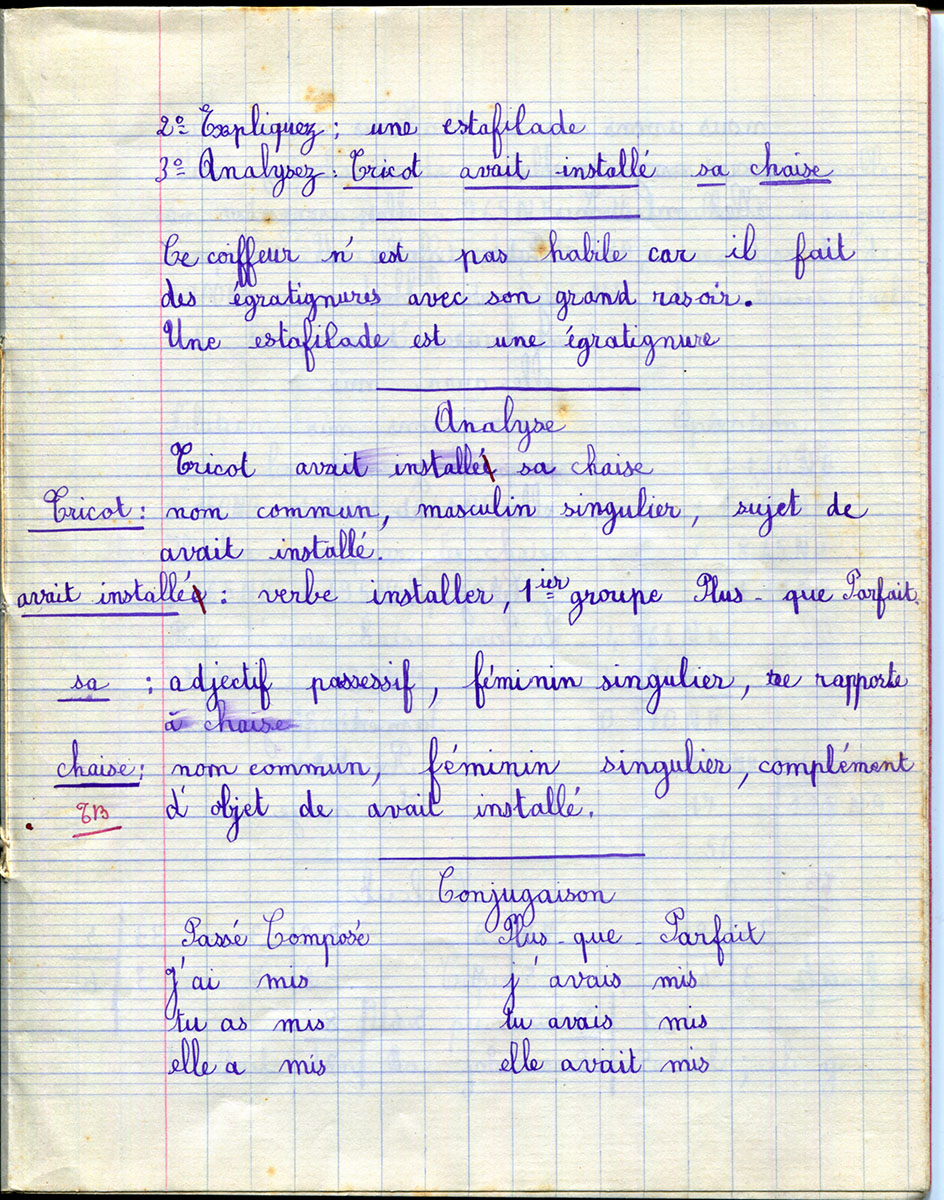 2º Expliquez : une estafilade
3º Analysez : Tricot avait installé sa chaise
Ce coiffeur n'est pas habile car il fait
des égratignures avec son grand rasoir.
Une estafilade est une égratignure
Analyse
Tricot avait installé sa chaise
Tricot : nom commun, masculin singulier, sujet de
avait installé.
avait installé : verbe installer, 1ier groupe Plus-que Parfait.
sa : adjectif possessif, féminin singulier, se rapporte
à chaise
chaise : nom commun, féminin singulier, complément
TB d'objet de avait installé.
Conjugaison
Passé Composé Plus-que-Parfait
j'ai mis j'avais mis
tu as mis tu avais mis
elle a mis elle avait mis